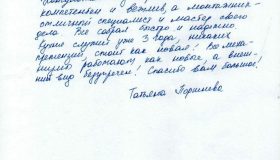 компетентен и вежлив, а монтажник-
отличный специалист и мастер своего
дела. Всё собрал быстро и надёжно.
Кухня служит уже 3 года, никаких
претензий, стоит как новая! Все меха-
низмы работают как новые, а внеш-
ний вид безупречен! Спасибо вам большое!
Татьяна